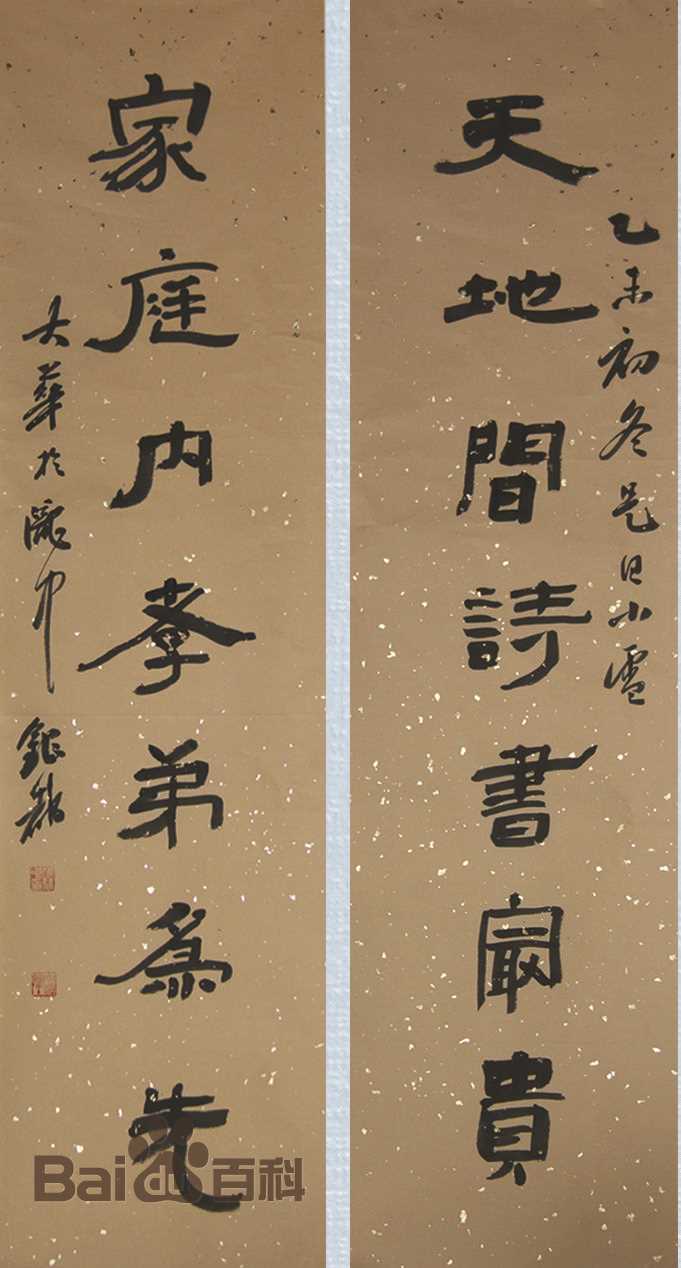 天地間詩書最貴
乙未初冬是日小雪
家庭内孝弟為先
大華於
Bai 百科